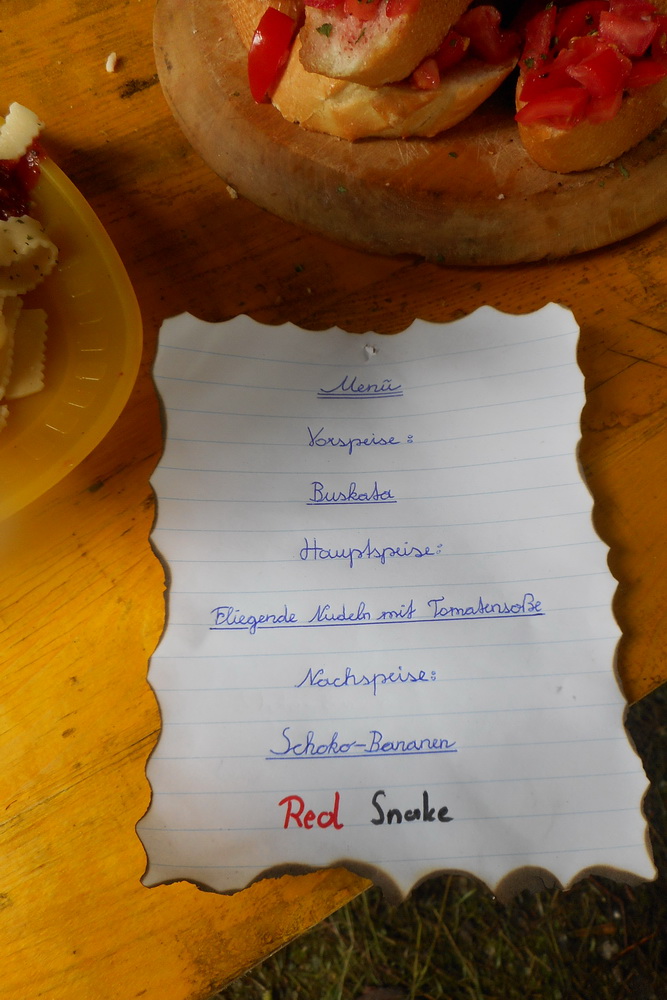 Menü
Vorspeise:
Buskata
Hauptspeise:
Fliegende Nudeln mit Tomatensoße
Nachspeise:
Schoko-Bananen
Red Snake